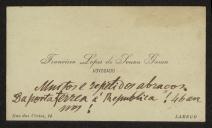 Francisco Lopes de Souza Gama
ADVOGADO
Muitos e repetidos abraços.
Da porta ferrea á Republica! 46 an
nos!
Rua das Cortes, 14
LAMEGO